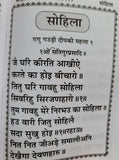 सोहिला
रागु गउड़ी दीपकी महला १
१ओं सतिगुरप्रसादि
जै घरि कीरति आखीऐ
करते का होइ बीचारो ॥
तितु घरि गावहु सोहिला
सिवरिहु सिरजणहारो ॥१॥
तुम गावहु मेरे निरभउ का सोहिला ॥
हउ वारी जितु सोहिलै
सदा सुखु होइ ॥१॥
नित नित जीअड़े समालीअनि
देखैगा देवणहारु ॥